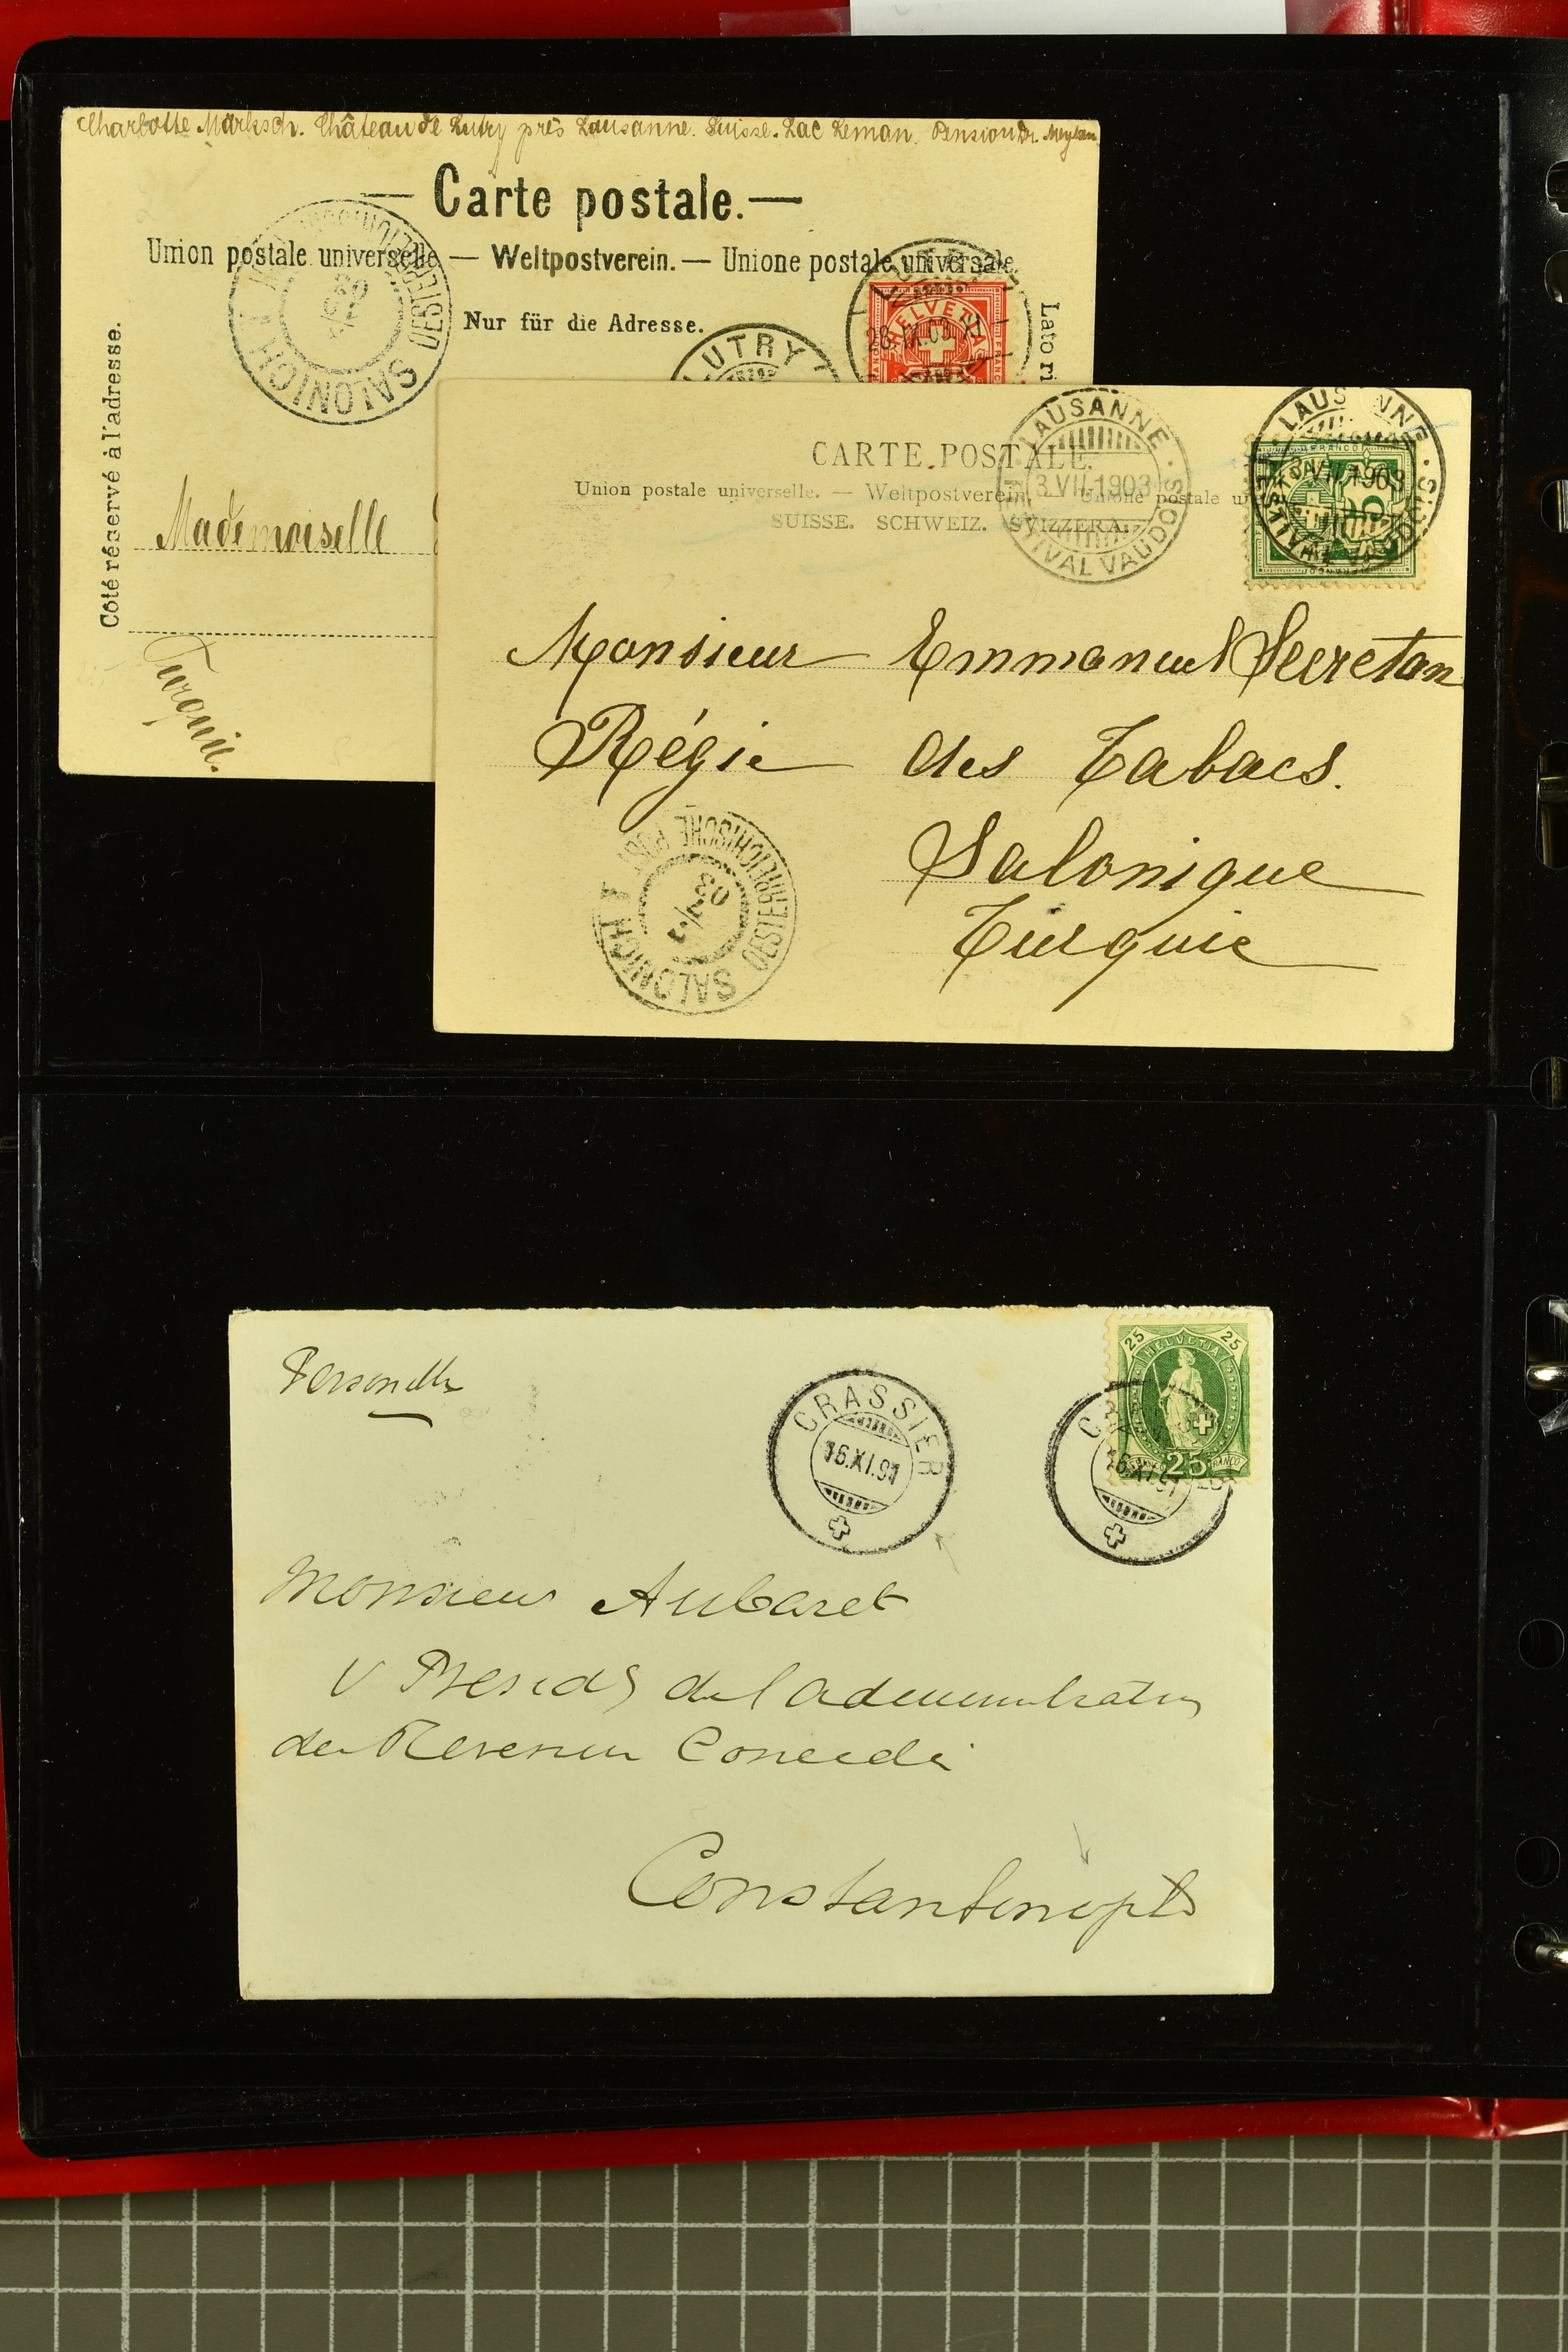 Charlotte Marksch. Château de Lutry près Lausanne. Suisse. Lac Leman. Pension Dr. Meylan
— Carte postale. —
Union postale universelle — Weltpostverein. — Unione postale universale
Nur für die Adresse.
Côté réservé à l'adresse.
Lato ri
SALONICH 1 OESTERREICHISCHE POST
LUTRY
HELVETIA
28.IX.03.XI
Mademoiselle
Turquie.
CARTE POSTALE.
Union postale universelle. — Weltpostverein. — Unione postale un
SUISSE. SCHWEIZ. SVIZZERA.
LAUSANNE
3 VII 1903
FESTIVAL VAUDOIS
LAUSANNE
3 VII 1903
FRANCO
5
Monsieur Emmanuel Secretan
Régie des Tabacs.
Salonique
Turquie
SALONICH 1 OESTERREICHISCHE POST
03
Personelle
CRASSIER
16.XI.97
25 HELVETIA 25
25 FRANCO
16.XI.97
Monsieur Aubaret
V Presidt de l administration
des Revenus Concédés
Constantinople